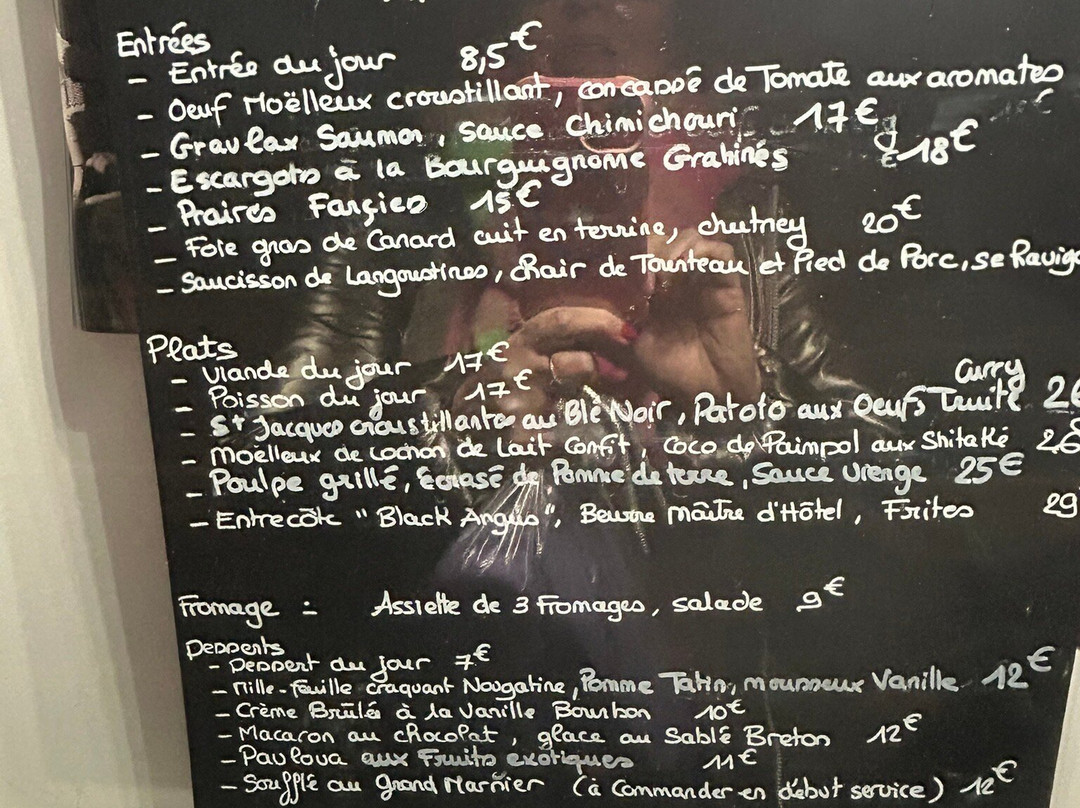 Entrées
- Entrée du jour 8,5€
- Oeuf Moëlleux croustillant, concassé de Tomate aux aromates
- Gravlax Saumon, sauce chimichouri 17€
- Escargots à la Bourguignonne Gratinés 18€
- Praires Farçies 15€
- Foie gras de Canard cuit en terrine, chutney 20€
- Saucisson de Langoustines, chair de Tourteau et Pied de Porc, sce Ravigo
Plats
- Viande du jour 17€
- Poisson du jour 17€
- St Jacques croustillantes au Blé Noir, Patoto aux Oeufs Truite curry
- Moëlleux de cochon de Lait Confit, Coco de Paimpol aux Shitaké 26
- Poulpe grillé, Ecrasé de Pomme de terre, Sauce Vierge 25€
- Entrecôte "Black Angus", Beurre Maître d'Hôtel, Frites 29
Fromage : Assiette de 3 Fromages, salade 9€
Desserts
- Dessert du jour 7€
- Mille-feuille craquant Nougatine, Pomme Tatin, mousseux Vanille 12€
- Crème Brûlée à la Vanille Bourbon 10€
- Macaron au chocolat, glace au Sablé Breton 12€
- Pavlova aux Fruits exotiques 11€
- Soufflé au Grand Marnier (à Commander en début service) 12€